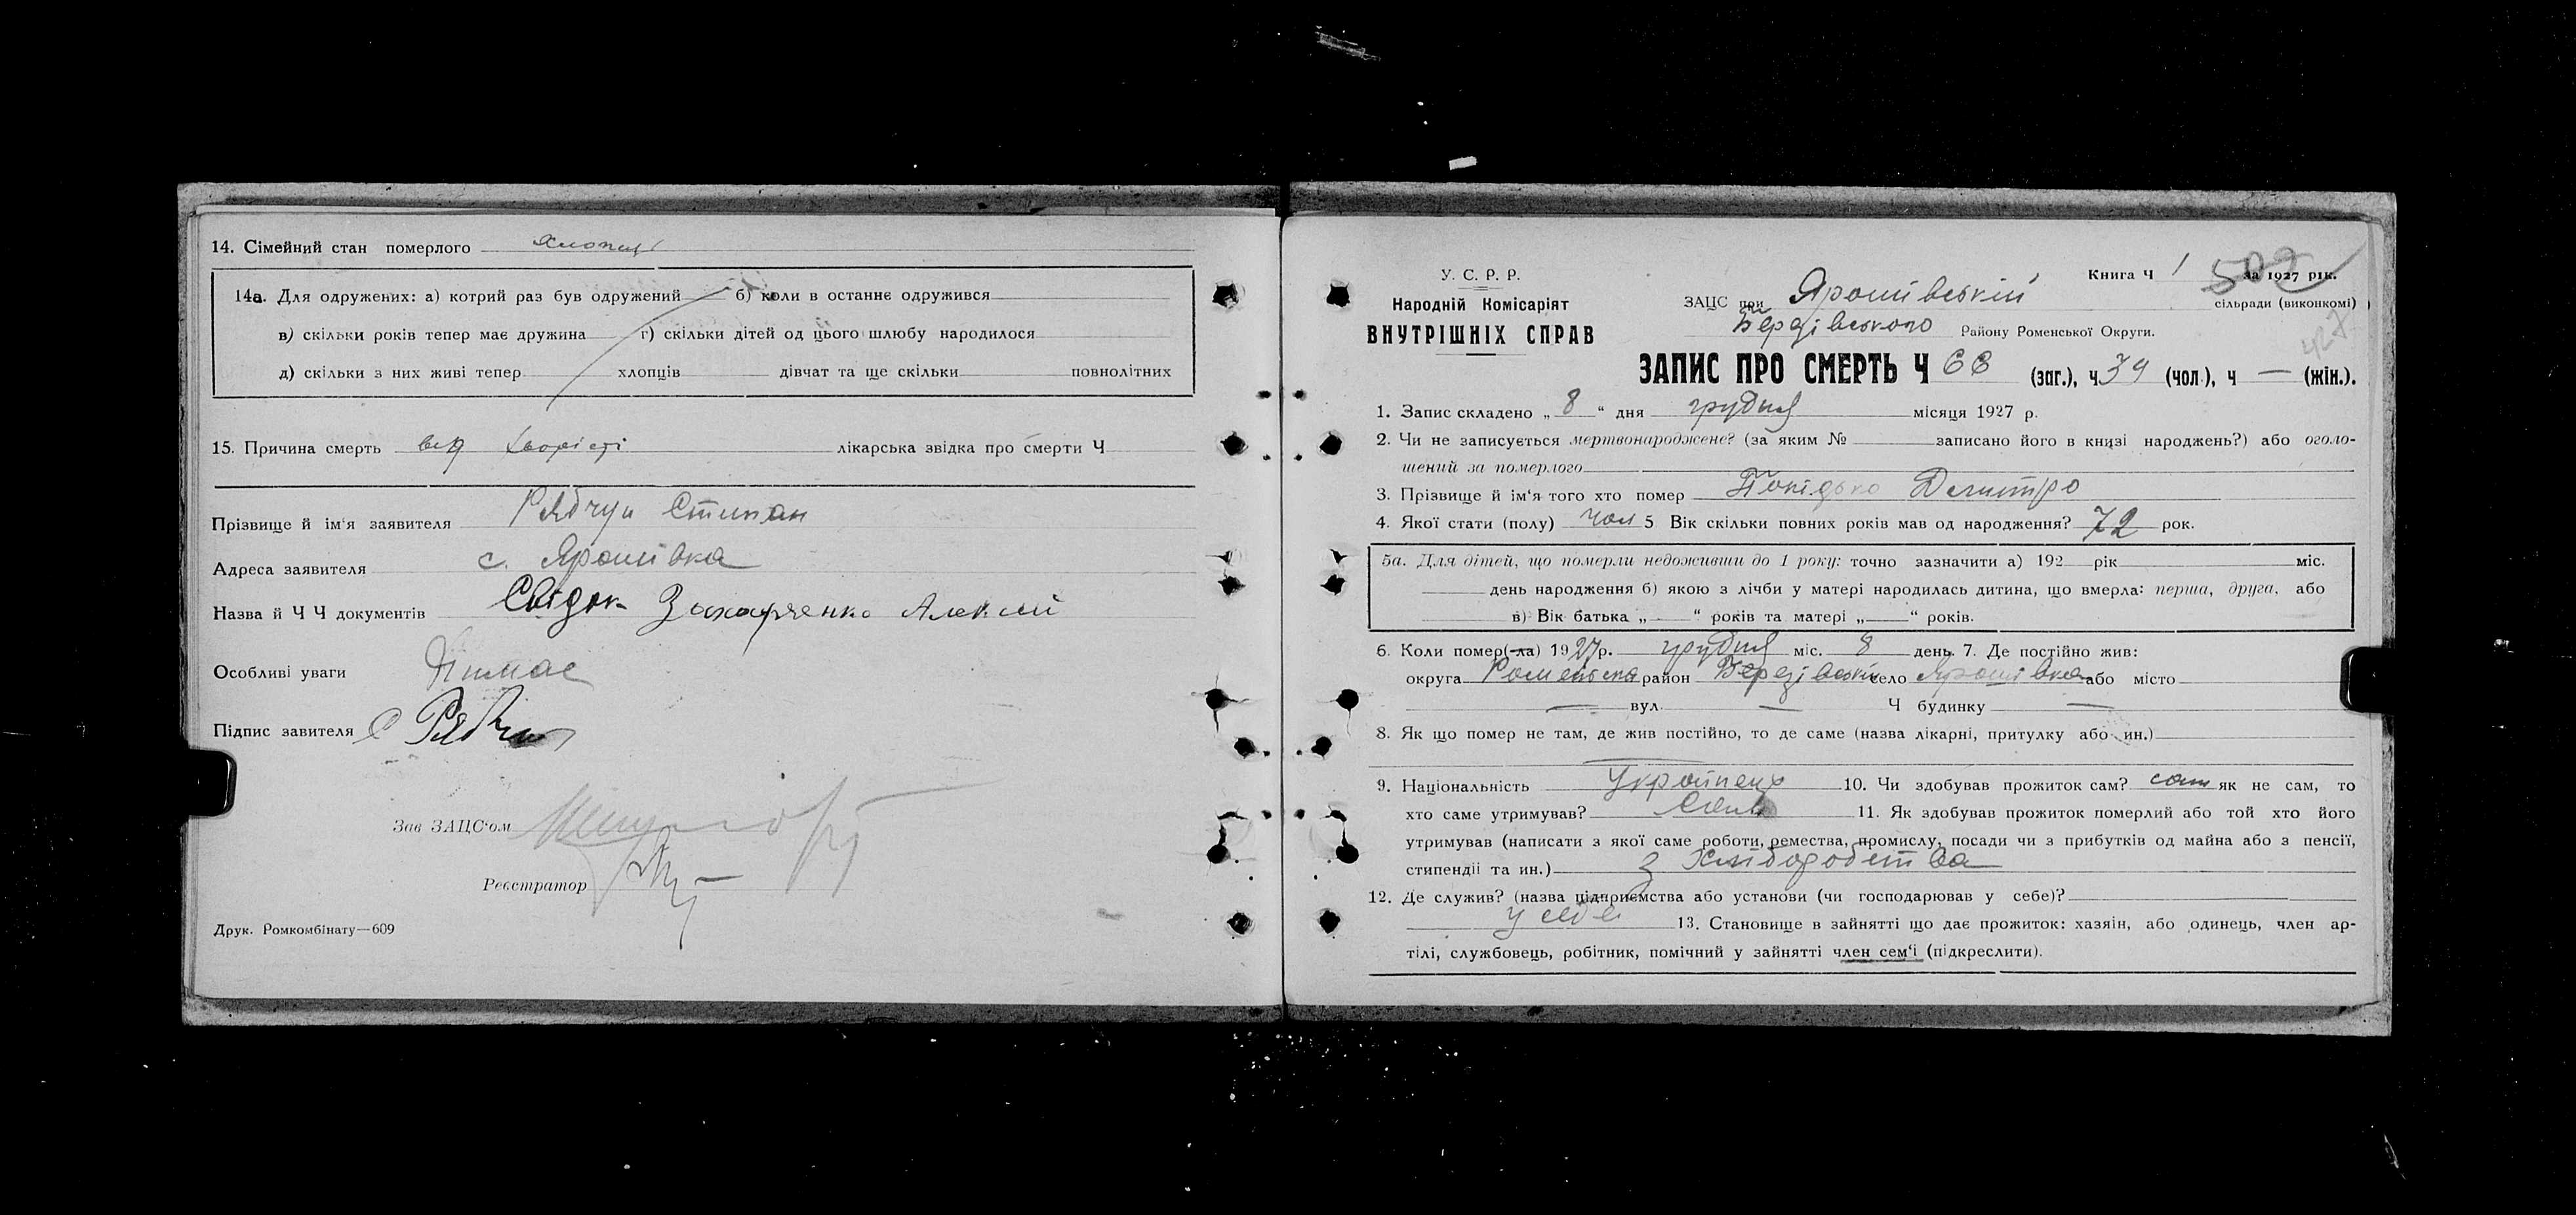 14. Сімейний стан померлого
14а. Для одружених: а) котрий раз був одружений б) коли в останнє одружився
в) скільки років тепер має дружина г) скільки дітей од цього шлюбу народилося
д) скільки з них живі тепер хлопців дівчат та ще скільки повнолітних
15. Причина смерть лікарська звідка про смерти Ч
Прізвище й ім'я заявителя Рябчун Степан
Адреса заявителя с. Ярошівка
Назва й Ч Ч документів Свідок Захарченко Алексій
Особливі уваги Німає
Підпис завителя
Зав ЗАЦС'ом
Реєстратор
Друк. Ромкомбінату—609
У. С. Р. Р.
Народній Комісаріят
ВНУТРІШНІХ СПРАВ
Книга Ч 1 за 1927 рік.
507
ЗАЦС при Ярошівській сільради (виконкомі)
Березівського Району Роменської Округи.
427
ЗАПИС ПРО СМЕРТЬ Ч 66 (заг.), ч 34 (чол.), ч — (жін.).
1. Запис складено „ 8 “ дня грудня місяця 1927 р.
2. Чи не записується мертвонароджене? (за яким № записано його в книзі народжень?) або оголо-
шений за померлого
3. Прізвище й ім'я того хто помер Дмитро
4. Якої стати (полу) чол 5 Вік скільки повних років мав од народження? 72 рок.
5а. Для дітей, що померли недоживши до 1 року: точно зазначити а) 192 рік міс.
день народження б) якою з лічби у матері народилась дитина, що вмерла: перша, друга, або
в) Вік батька „ — “ років та матері „ — “ років.
6. Коли помер(-ла) 1927р. грудня міс. 8 день. 7. Де постійно жив:
округа Роменська район Березівський село Ярошівка або місто
— вул. — Ч будинку —
8. Як що помер не там, де жив постійно, то де саме (назва лікарні, притулку або ин.)
9. Національність Українець 10. Чи здобував прожиток сам? сам як не сам, то
хто саме утримував? 11. Як здобував прожиток померлий або той хто його
утримував (написати з якої саме роботи, ремества, промислу, посади чи з прибутків од майна або з пенсії,
стипендії та ин.) з хліборобства
12. Де служив? (назва підприємства або установи (чи господарював у себе)?
у себе 13. Становище в зайнятті що дає прожиток: хазяін, або одинець, член ар-
тілі, службовець, робітник, помічний у зайнятті член сем'ї (підкреслити).